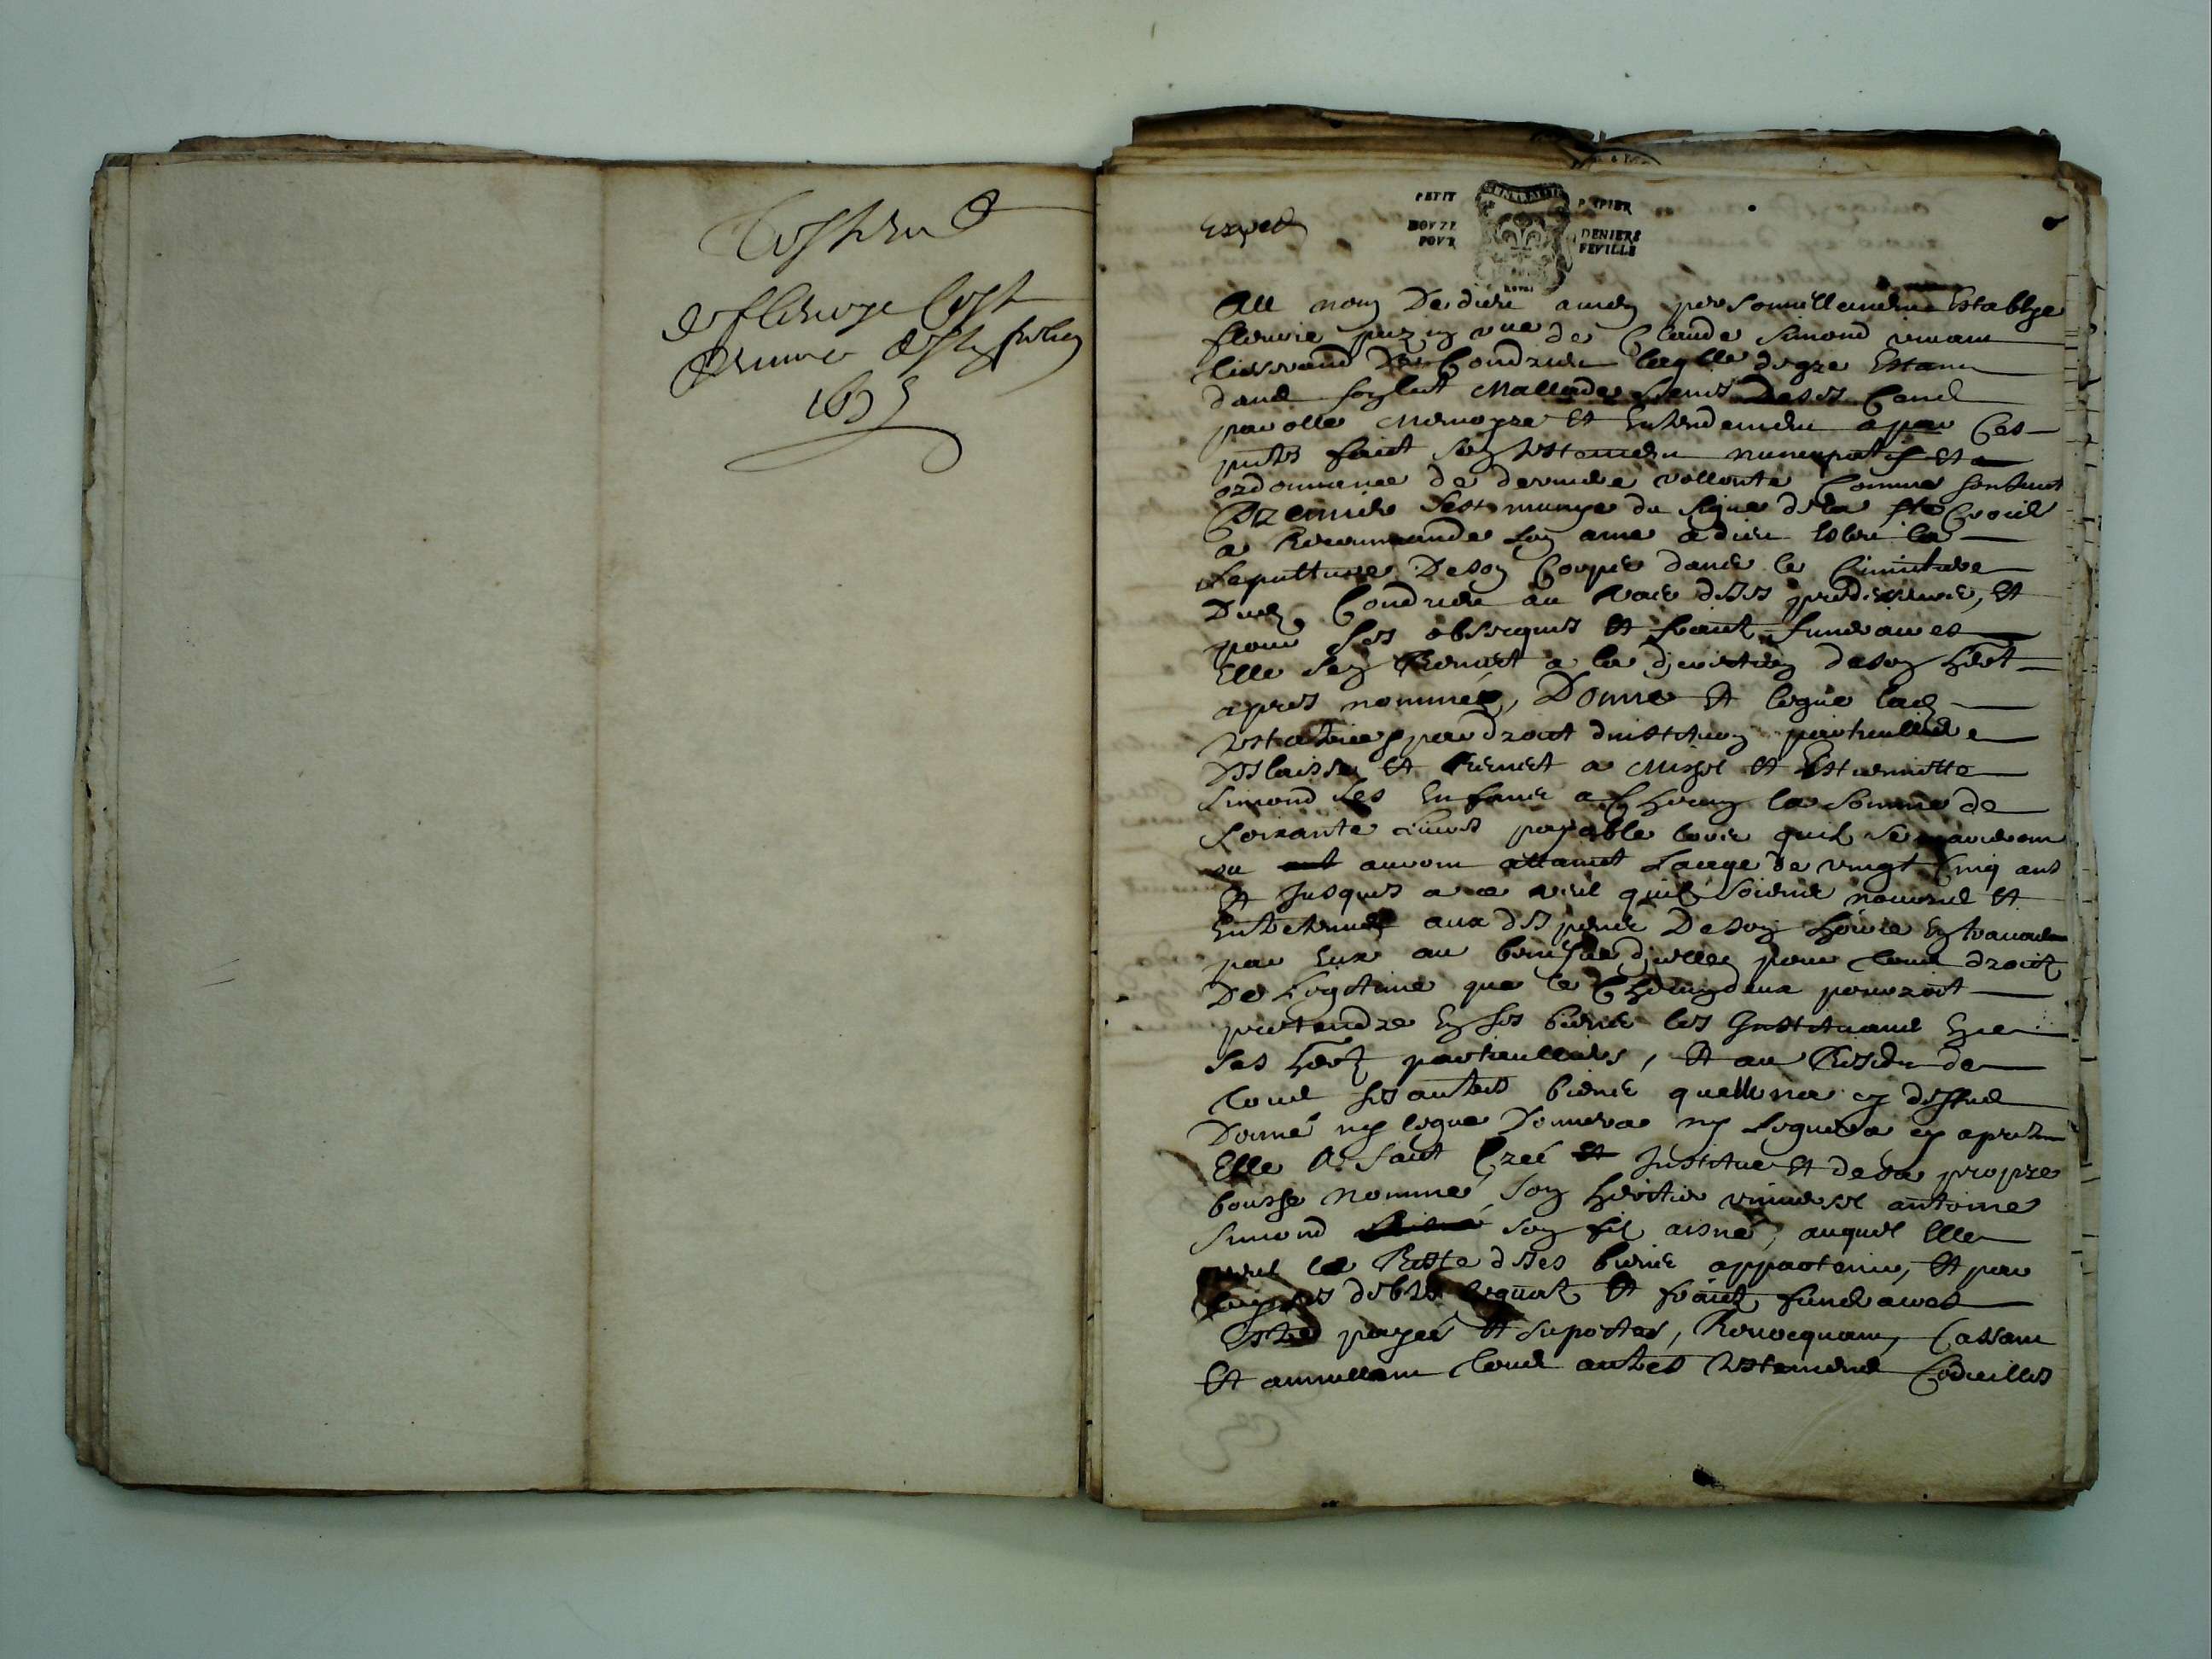 Testament
de fleurye
1675
Exped
PETIT PAPIER
DOVZE DENIERS
POVR FEVILLE
Au nom De dieu amen personnellement Establye
fleurie vve de Claude Simond vivant
de Condrieu laqlle de gre Estant
dans son lict Mallade sens
parolle Memoyre Et Entendement a par Ces
pntes faict son testament nuncupatif Et
ordonnance de derniere vollonté Comme sensuit
Premier sest munye du signe de la ste Croix
a Recommandé son ame a dieu Esleu la
sepulture De son Corps dans le Cimitiere
Dud Condrieu au Vas de ses predecesseurs, Et
pour ses obseques Et frais funeraires
Elle sen Remet a la discretion de son herit
apres nommé, Donne Et legue lad
testatrice par droit dinstitution particulliere
Delaisse Et Remet a Et Estiennette
Simond ses Enfans a Chscung la somme de
soixante livres payable lors quilz se marieront
ou auront attaint laage de vingt Cinq ans
Et Jusques a ce veut quilz soient nourris Et
Entretenus aux despens De son hoirie En travaillant
par Eux au benefice dicelle pour tous droits
De Legitime que le Chscung deux pourroit
pretendre En ses biens les Instituant En
ses herit particulliers, Et au Residu de
tous ses autres biens quelle na cy dessus
Donné ny legué Donnera ny Leguera cy apres
Elle A fait Créé Et Institue Et de sa propre
bouche nommé son heritier universel antoine
Simond son fil aisné, auquel Elle
veut le Reste de ses biens appartenir, Et par
luy ses debtes legats Et frais funeraires
Estre payés Et suportes, Revocquant, Cassant
Et annullant tous autres testamens Codicilles